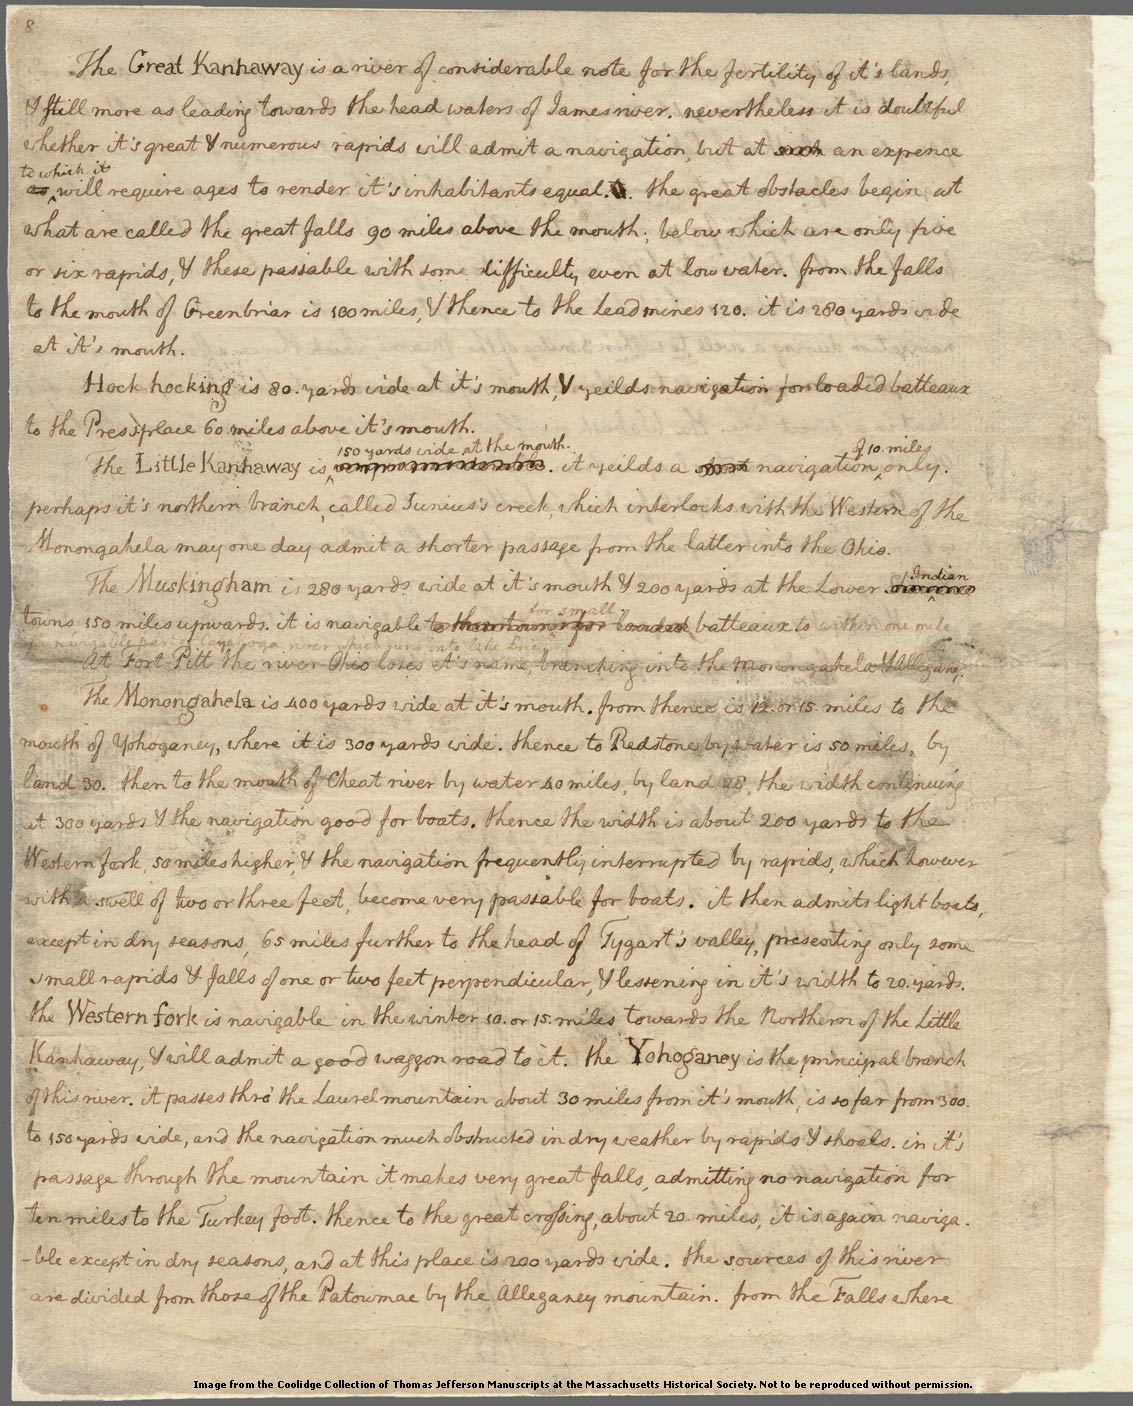 8
The Great Kanhaway is a river of considerable note for the fertility of it's lands,
& still more as leading towards the head waters of James river. nevertheless it is doubtful
whether it's great & numerous rapids will admit a navigation, but at such an expence
to which it
as will require ages to render it's inhabitants equal. the great obstacles begin at
what are called the great falls 90 miles above the mouth; below which are only five
or six rapids, & these passable with some difficulty even at low water. from the falls
to the mouth of Greenbriar is 100 miles, & thence to the Lead mines 120. it is 280 yards wide
at it's mouth.
Hock hocking is 80. yards wide at it's mouth, & yeilds navigation for loaded batteaux
to the Press place 60 miles above it's mouth.
150 yards wide at the mouth. of 10 miles
The Little Kanhaway is . it yeilds a short navigation only.
perhaps it's northern branch, called Junius's creek, which interlocks with the Western of the
Monongahela may one day admit a shorter passage from the latter into the Ohio.
Indian
The Muskingham is 280 yards wide at it's mouth & 200 yards at the Lower
for small
towns 150 miles upwards. it is navigable to for loaded batteaux to within one mile
of a navigable part of Cayahoga river which runs into lake Erie
At Fort Pitt the river Ohio loses it's name, branching into the Monongahela & Allegany.
The Monongahela is 400 yards wide at it's mouth. from thence is 12. or 15. miles to the
mouth of Yohoganey, where it is 300 yards wide. thence to Redstone by water is 50 miles, by
land 30. then to the mouth of Cheat river by water 40 miles, by land 28, the width continuing
at 300 yards & the navigation good for boats. thence the width is about 200 yards to the
Western fork, 50 miles higher, & the navigation frequently interrupted by rapids, which however
with a swell of two or three feet, become very passable for boats. it then admits light boats,
except in dry seasons, 65 miles further to the head of Tygart's valley, presenting only some
small rapids & falls of one or two feet perpendicular, & lessening in it's width to 20. yards.
the Western fork is navigable in the winter 10. or 15. miles towards the Northern of the Little
Kanhaway, & will admit a good waggon road to it. the Yohoganey is the principal branch
of this river. it passes thro' the Laurel mountain about 30 miles from it's mouth, is so far from 300.
to 150 yards wide, and the navigation much obstructed in dry weather by rapids & shoals. in it's
passage through the mountain it makes very great falls, admitting no navigation for
ten miles to the Turkey foot. thence to the great crossing, about 20. miles, it is again naviga-
-ble except in dry seasons, and at this place is 200 yards wide. the sources of this river
are divided from those of the Patowmac by the Alleganey mountain. from the Falls where
Image from the Coolidge Collection of Thomas Jefferson Manuscripts at the Massachusetts Historical Society. Not to be reproduced without permission.